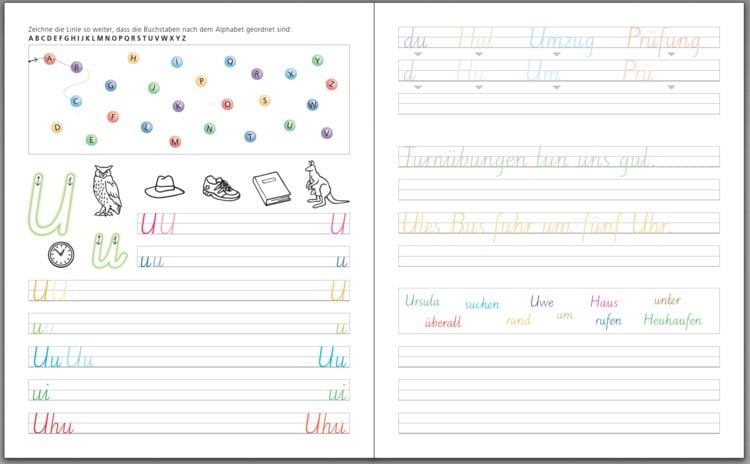 Zeichne die Linie so weiter, dass die Buchstaben nach dem Alphabet geordnet sind:
A B C D E F G H I J K L M N O P Q R S T U V W X Y Z
A B H I Q P X Y Z
C G J K O S W
D F E L M N T U V
U u
U U U
u u u
U U U
u u u
Uu Uu Uu
ui ui
Uhu Uhu
du Hut Umzug Prüfung
d Hu Um Prü
Turnübungen tun uns gut.
Utes Bus fuhr um fünf Uhr.
Ursula suchen Uwe Haus unter
überall rund um rufen Heuhaufen